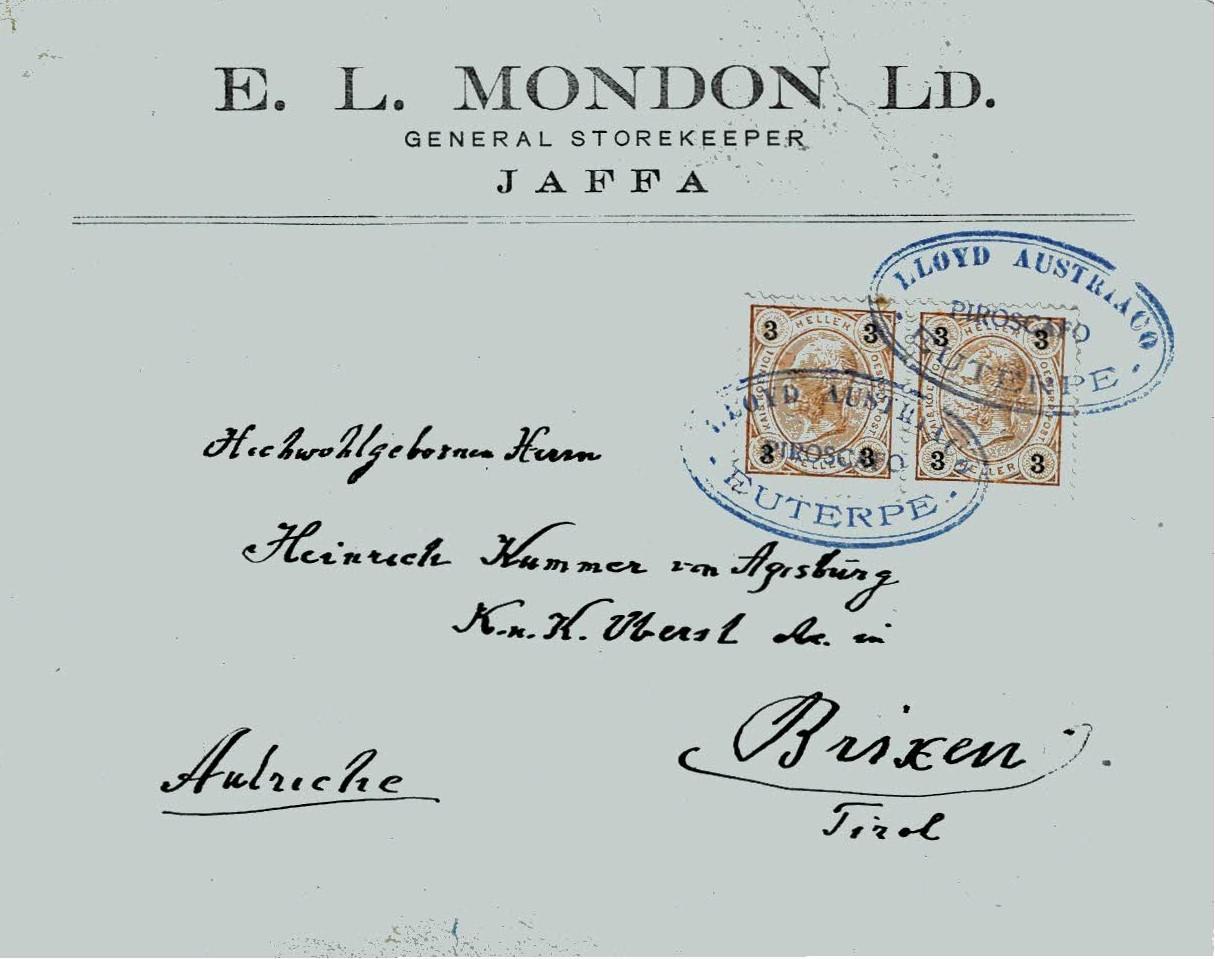 E. L. MONDON LD.
GENERAL STOREKEEPER
JAFFA
LLOYD AUSTRIACO
PIROSCAFO
EUTERPE
3 HELLER 3
3 HELLER 3
3 HELLER 3
3 HELLER 3
LLOYD AUSTRIACO
PIROSCAFO
EUTERPE
Hochwohlgebornen Herrn
Heinrich Kummer von
K. u. K. Oberst in
Brixen
Tirol
Autriche